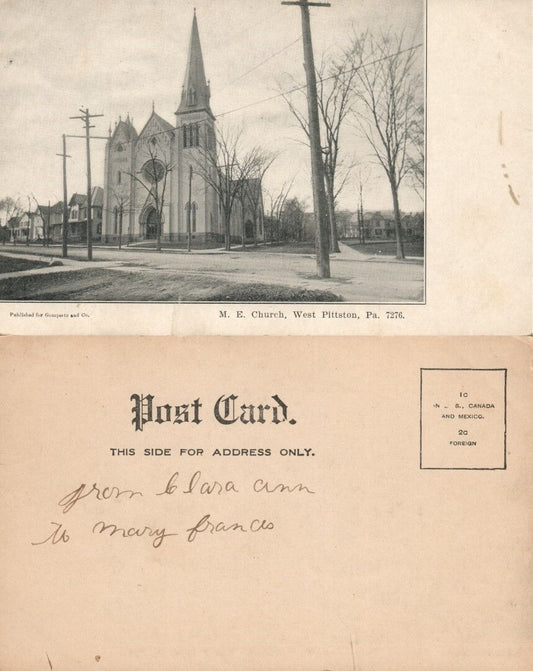 Published for Gomperts and Co.
M. E. Church, West Pittston, Pa. 7276.
Post Card.
THIS SIDE FOR ADDRESS ONLY.
1c
IN . S., CANADA
AND MEXICO.
2c
FOREIGN
from Clara ann
to mary frances